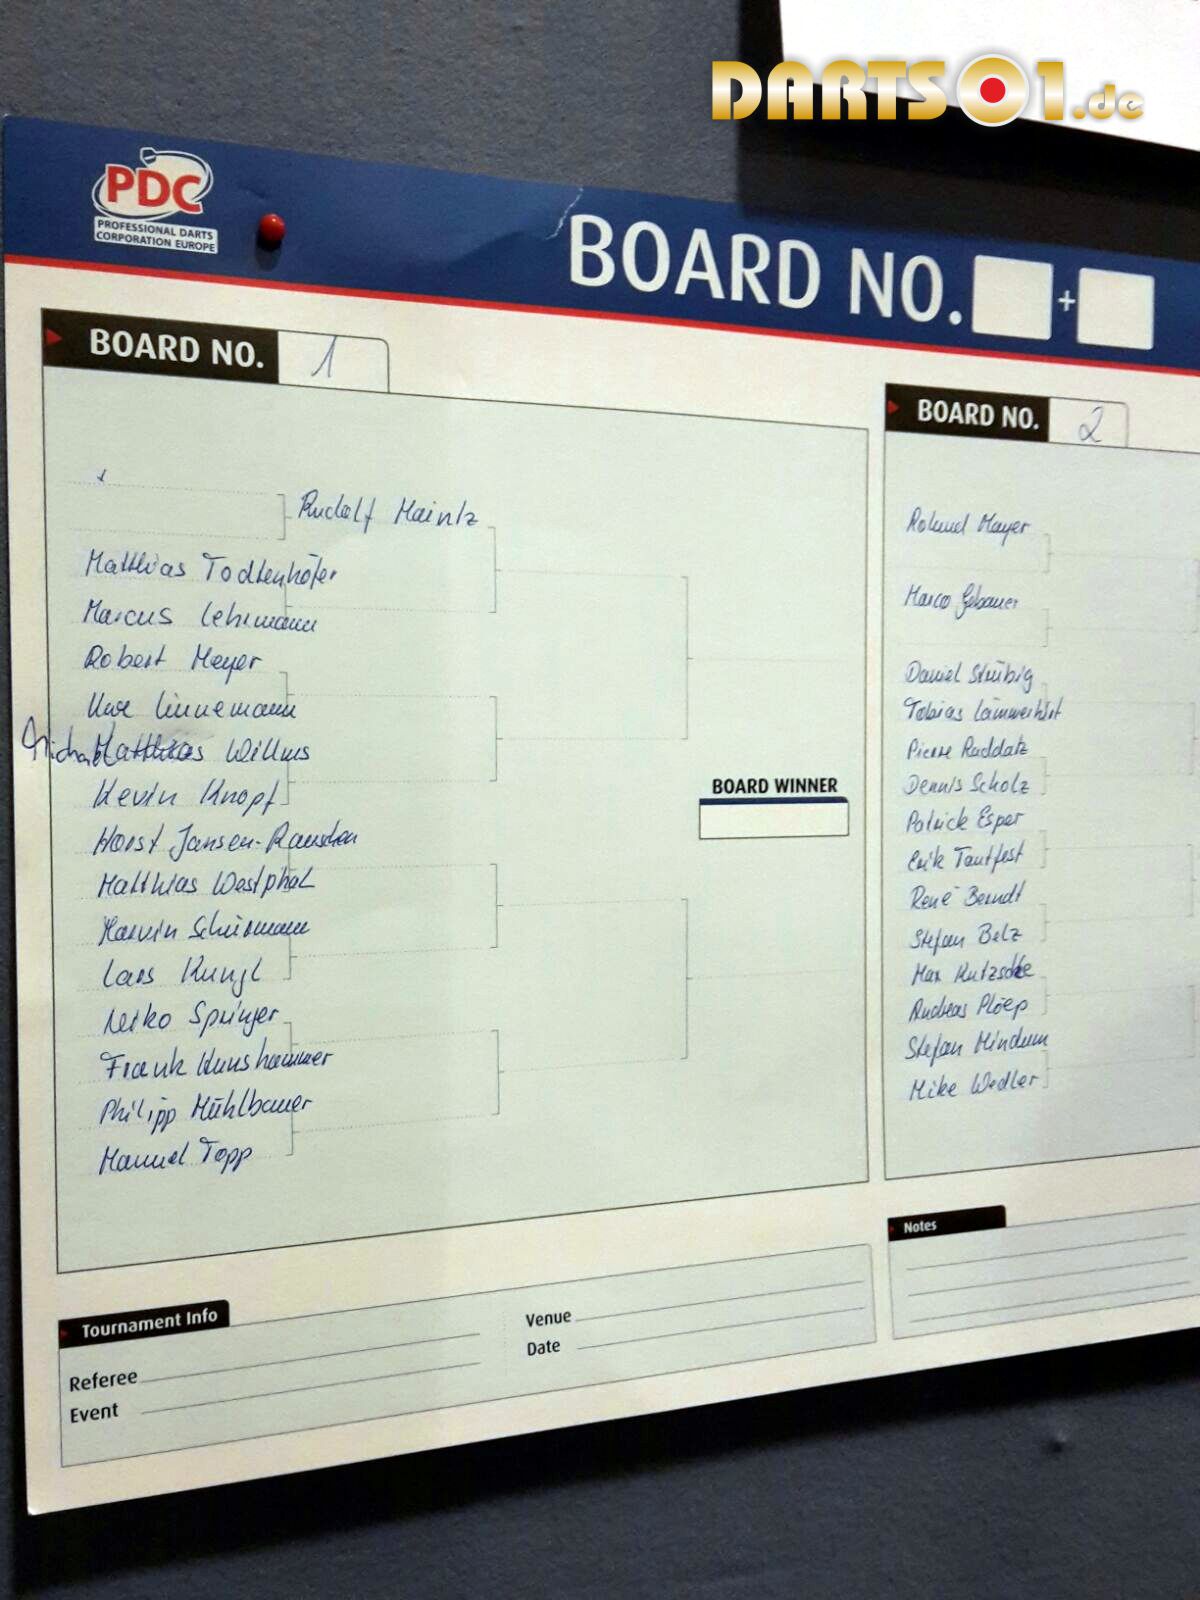 DARTS 1.de
PDC
PROFESSIONAL DARTS
CORPORATION EUROPE
BOARD NO. +
BOARD NO. 1
Rudolf Maintz
Matthias Todtenhöfer
Marcus Lehrmann
Robert Meyer
Uwe Linnemann
Michael Matthias Willms
Kevin Knopf
Horst Jansen-Rauschen
Matthias Westphal
Marvin Schürmann
Lars Kungl
Neiko Springer
Frank Kunshammer
Philipp Mühlbauer
Manuel Topp
BOARD WINNER
BOARD NO. 2
Roland Mayer
Marco Gebauer
Daniel Stübig
Tobias Lämmerhirt
Pierre Raddatz
Dennis Scholz
Patrick Esper
Erik Tautfest
René Berndt
Stefan Belz
Max Kutzscke
Andreas Ploep
Stefan Mindum
Mike Wedler
Tournament Info
Referee
Event
Venue
Date
Notes